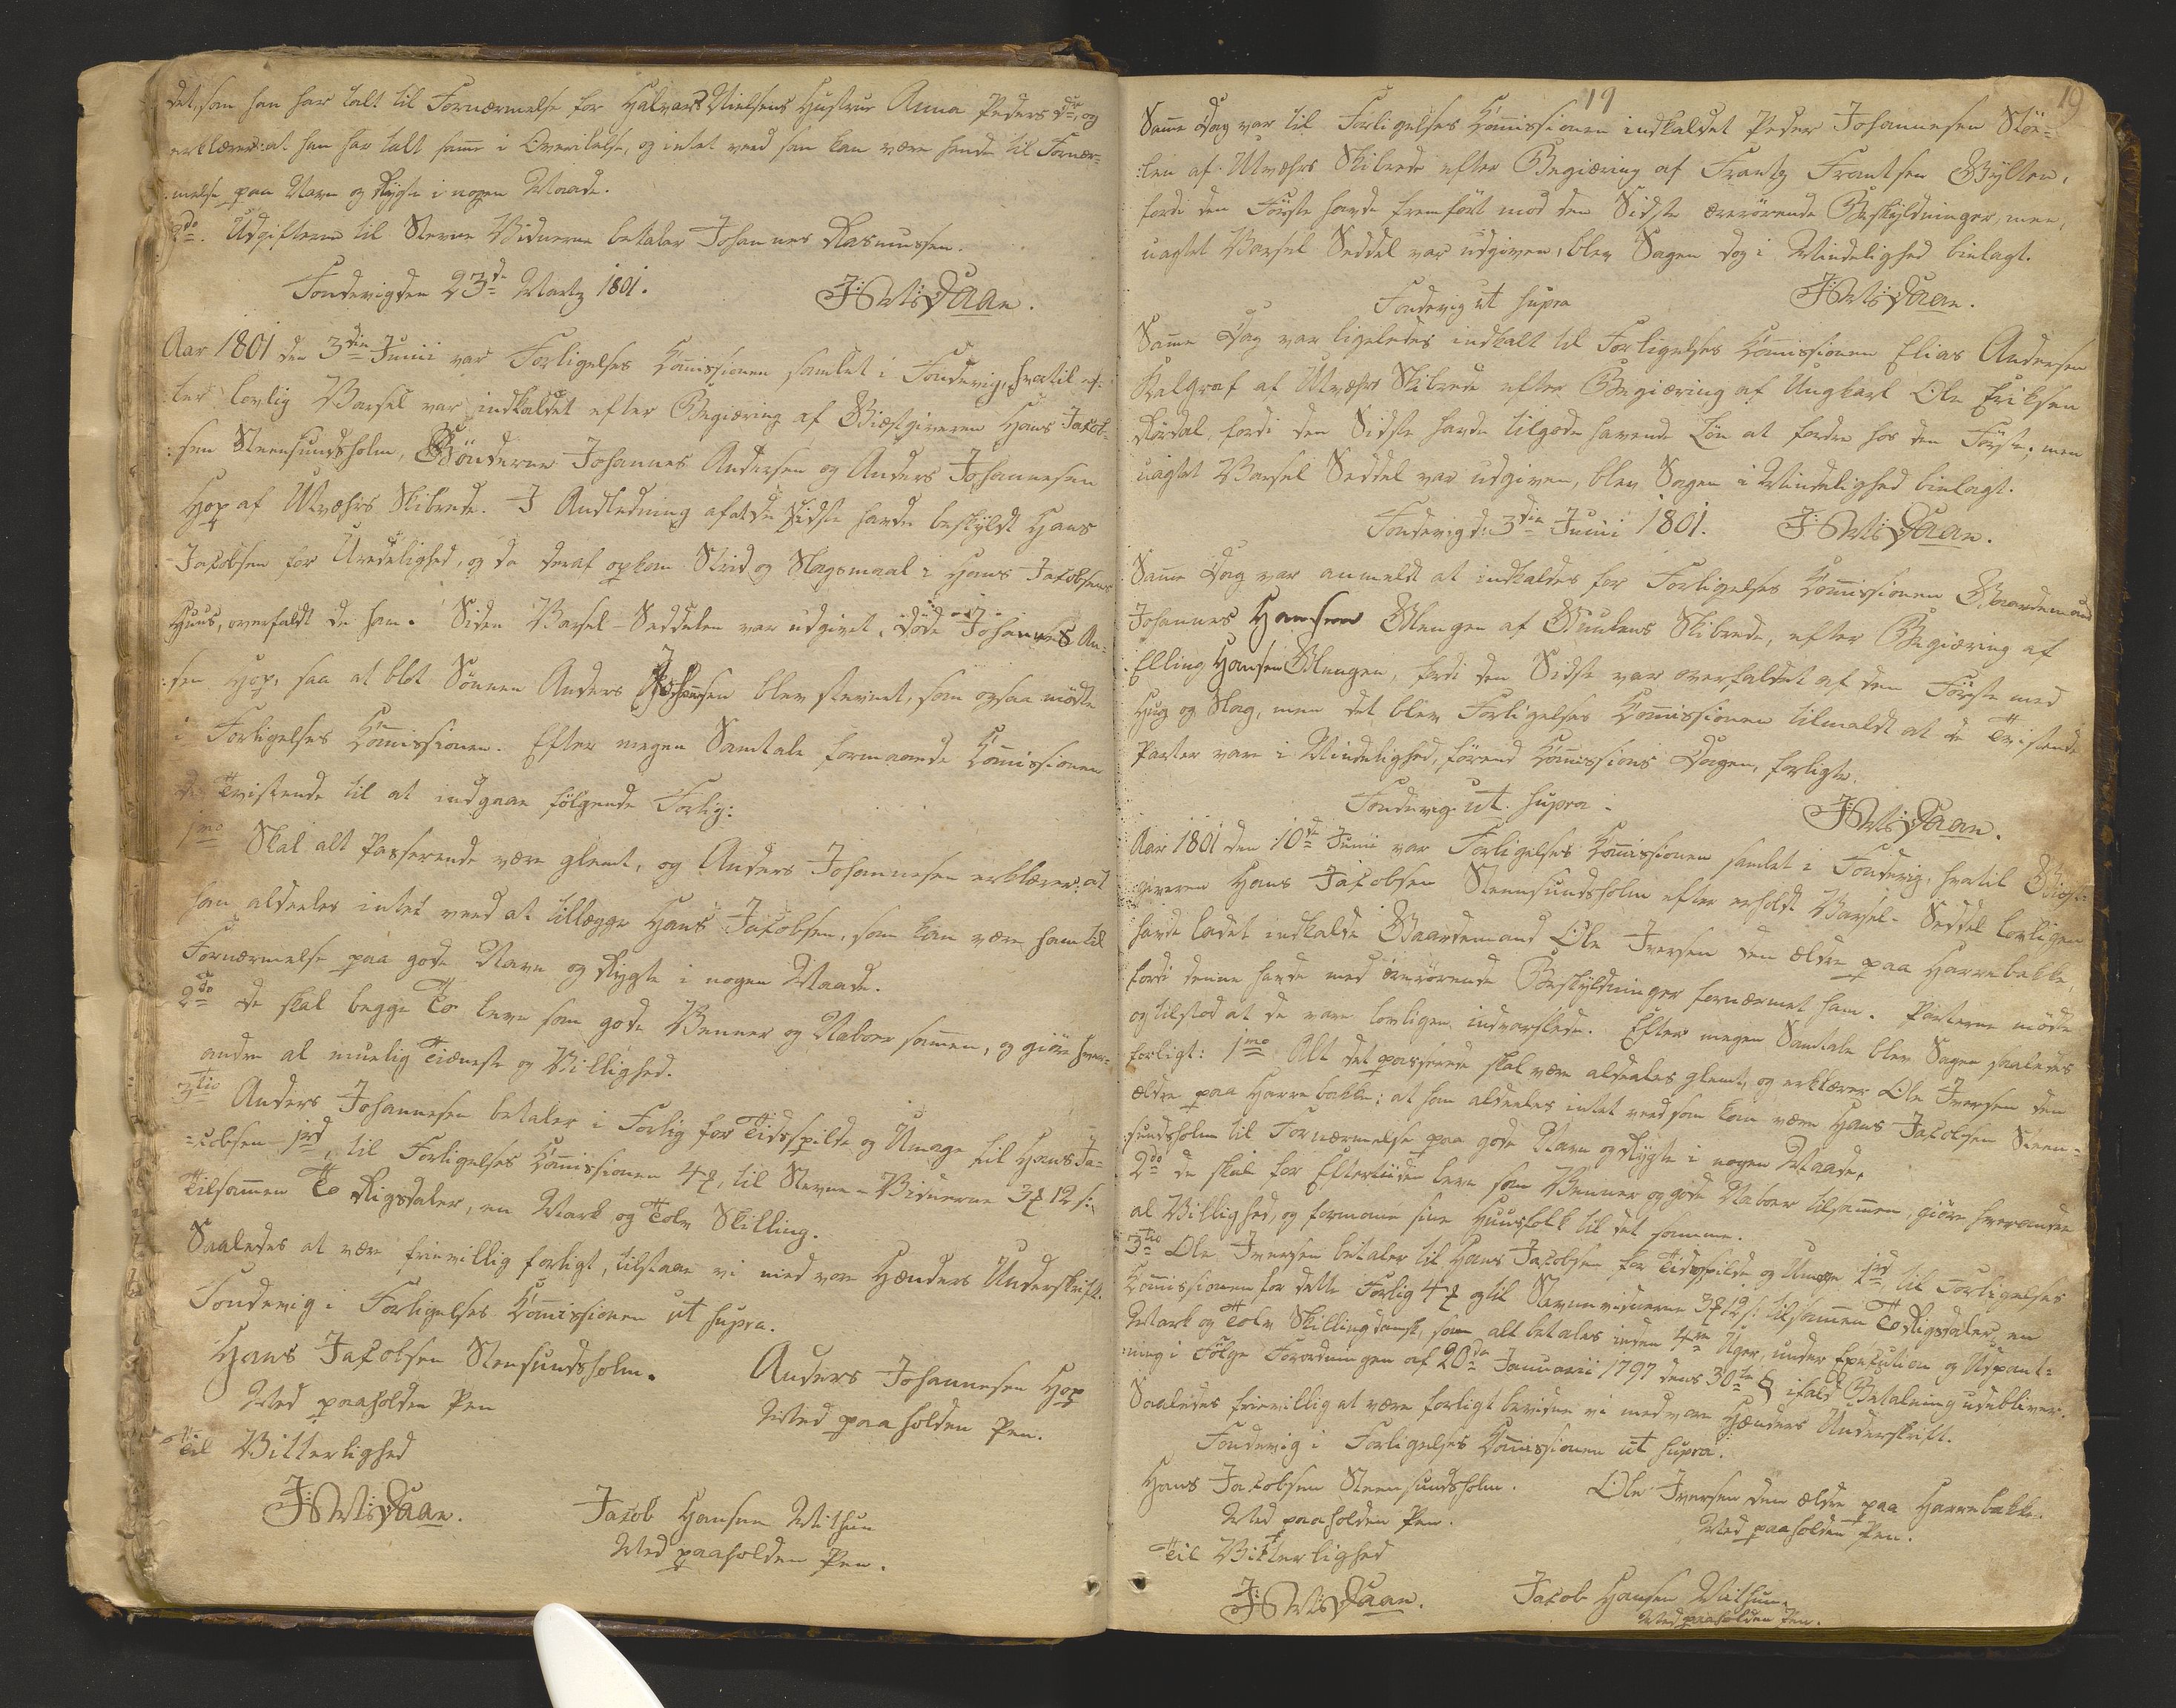 det, som han har talt til Fornærmelse for Halvard Nielsens Hustrue Anna Peders dr, og
erklærer: at han har talt samme i Overilelse, og intet veed som kan være hende til Fornær-
melse paa Navn og Rygte i nogen Maade.
2do. Udgifterne til Stevne Vidnerne betaler Johannes Rasmussen.
Sondevig den 23de Martz 1801.
J: Daae.
Aar 1801 den 3die Junii var Forligelses Commissionen samlet i Sondevig, hvortil ef-
ter lovlig Varsel var indkaldet efter Begiæring af Giæstgiveren Hans Jacob-
:sen Steensundsholm, Bønderne Johannes Andersen og Anders Johannesen
Hop af Utvæhrs Skibrede. I Andledning af at de sidste havde beskyldt Hans
Jacobsen for Uredelighed, og da deraf opkom Strid og Slagsmaal i Hans Jacobsens
Huus, overfaldt de ham. Siden Varsel-Seddelen var udgivet, døde Johannes An-
:sen Hop, saa at blot Sønnen Anders Johansen blev stevnet, som ogsaa mødte
i Forligelses Commissionen. Efter megen Samtale formaaede Commissionen
de Tvistende til at indgaae følgende Forlig:
1mo Skal alt Passerende være glemt, og Anders Johannesen erklærer: at
han aldeeles intet veed at tillægge Hans Jacobsen, som kan være ham til
Fornærmelse paa gode Navn og Rygte i nogen Maade.
2do de skal begge To leve som gode Venner og Naboer sammen, og giøre hver-
andre al muelig Tieneste og Billighed.
3tio Anders Johannesen betaler i Forlig for Tidsspilde og Umage til Hans Ja-
=cobsen 1rd, til Forligelses Commissionen 4 ꝑ, til Stevne-Vidnerne 3 ꝑ 12 s:,
Tilsammen To Rigsdaler, en Mark og Tolv Skilling.
Saaledes at være frievillig forligt, tilstaae vi med vore Hænders Underskrift.
Sondevig i Forligelses Commissionen ut supra.
Hans Jacobsen Stensundsholm. Anders Johannesen Hop
Med paaholden Pen Med paaholden Pen.
Til Vitterlighed
J: Daae. Jacob Hansen Mithun
Med paaholden Pen.
19 19
Samme Dag var til Forligelses Commissionen indkaldet Peder Johannesen Stør-
:len af Utvæhrs Skibrede efter Begiæring af Frantz Frantsen Bylten,
fordi den Første havde fremført mod den Sidste ærerørende Beskyldninger, men,
uagtet Varsel Seddel var udgiven, blev Sagen dog i Mindelighed bielagt.
Sondevig ut supra J: Daae.
Samme Dag var ligeledes indkalt til Forligelses Commissionen Elias Andersen
Kalgraf af Utvæhrs Skibrede efter Begiæring af Ungkarl Ole Eriksen
Rørdal, fordi den Sidste havde tilgode havende Løn at fordre hos den Første; men
uagtet Varsel Seddel var udgiven, blev Sagen i Mindelighed bielagt.
Sondevig d: 3die Junii 1801. J: Daae.
Samme Dag var anmeldt at indkaldes for Forligelses Commissionen Gaardemand
Johannes Hansen Mengen af Guulens Skibrede, efter Begiæring af
Elling Hansen Mengen, fordi den Sidste var overfaldet af den Første med
Hug og Slag, men det blev Forligelses Commissionen tilmeldt at de Tvistende
Parter vare i Mindelighed, førend Commissions Dagen, forligte.
Sondevig ut supra. J: Daae.
Aar 1801 den 10de Junii var Forligelses Commissionen samlet i Sondevig, hvortil Giæst-
:giveren Hans Jacobsen Steensundsholm efter erholdt Varsel-Seddel lovligen
havde ladet indkalde Gaardemand Ole Iversen den ældre paa Harrebakke,
fordi denne havde med ærerørende Beskyldninger fornærmet ham. Parterne mødte
og tilstod at de vare lovligen indvarslede. Efter megen Samtale blev Sagen saaledes
forligt: 1mo Alt det passerede skal være aldeeles glemt, og erklærer Ole Iversen den
ældre paa Harrebakke: at han aldeeles intet veed som kan være Hans Jacobsen Steen-
:sundsholm til Fornærmelse paa gode Navn og Rygte i nogen Maade.
2do de skal for Eftertiiden leve som Venner og gode Naboer tilsammen, giøre hverandre
al Billighed, og formane sine Huusfolk til det samme.
3tio Ole Iversen betaler til Hans Jacobsen for Tidsspilde og Umage 1rd til Forligelses
Commissionen for dette Forlig 4 ꝑ og til Stevnevidnerne 3 ꝑ 12 s: tilsammen To Rigsdaler en
Mark og Tolv Skilling dansk, som alt betales inden 4re Uger, under Execution og Udpant-
:ning i Følge Forordningen af 20de Januarii 1797 dens 30te § ifald Betalning udebliver.
Saaledes frievillig at være forligt bevidne vi med vore Hænders Underskrift.
Sondevig i Forligelses Commissionen ut supra.
Hans Jacobsen Steensundsholm. Ole Iversen den ældre paa Harrebakke.
Med paaholden Pen. Med paaholden Pen.
Til Vitterlighed
J: Daae. Jacob Hansen Mithun.
Med paaholden Pen.